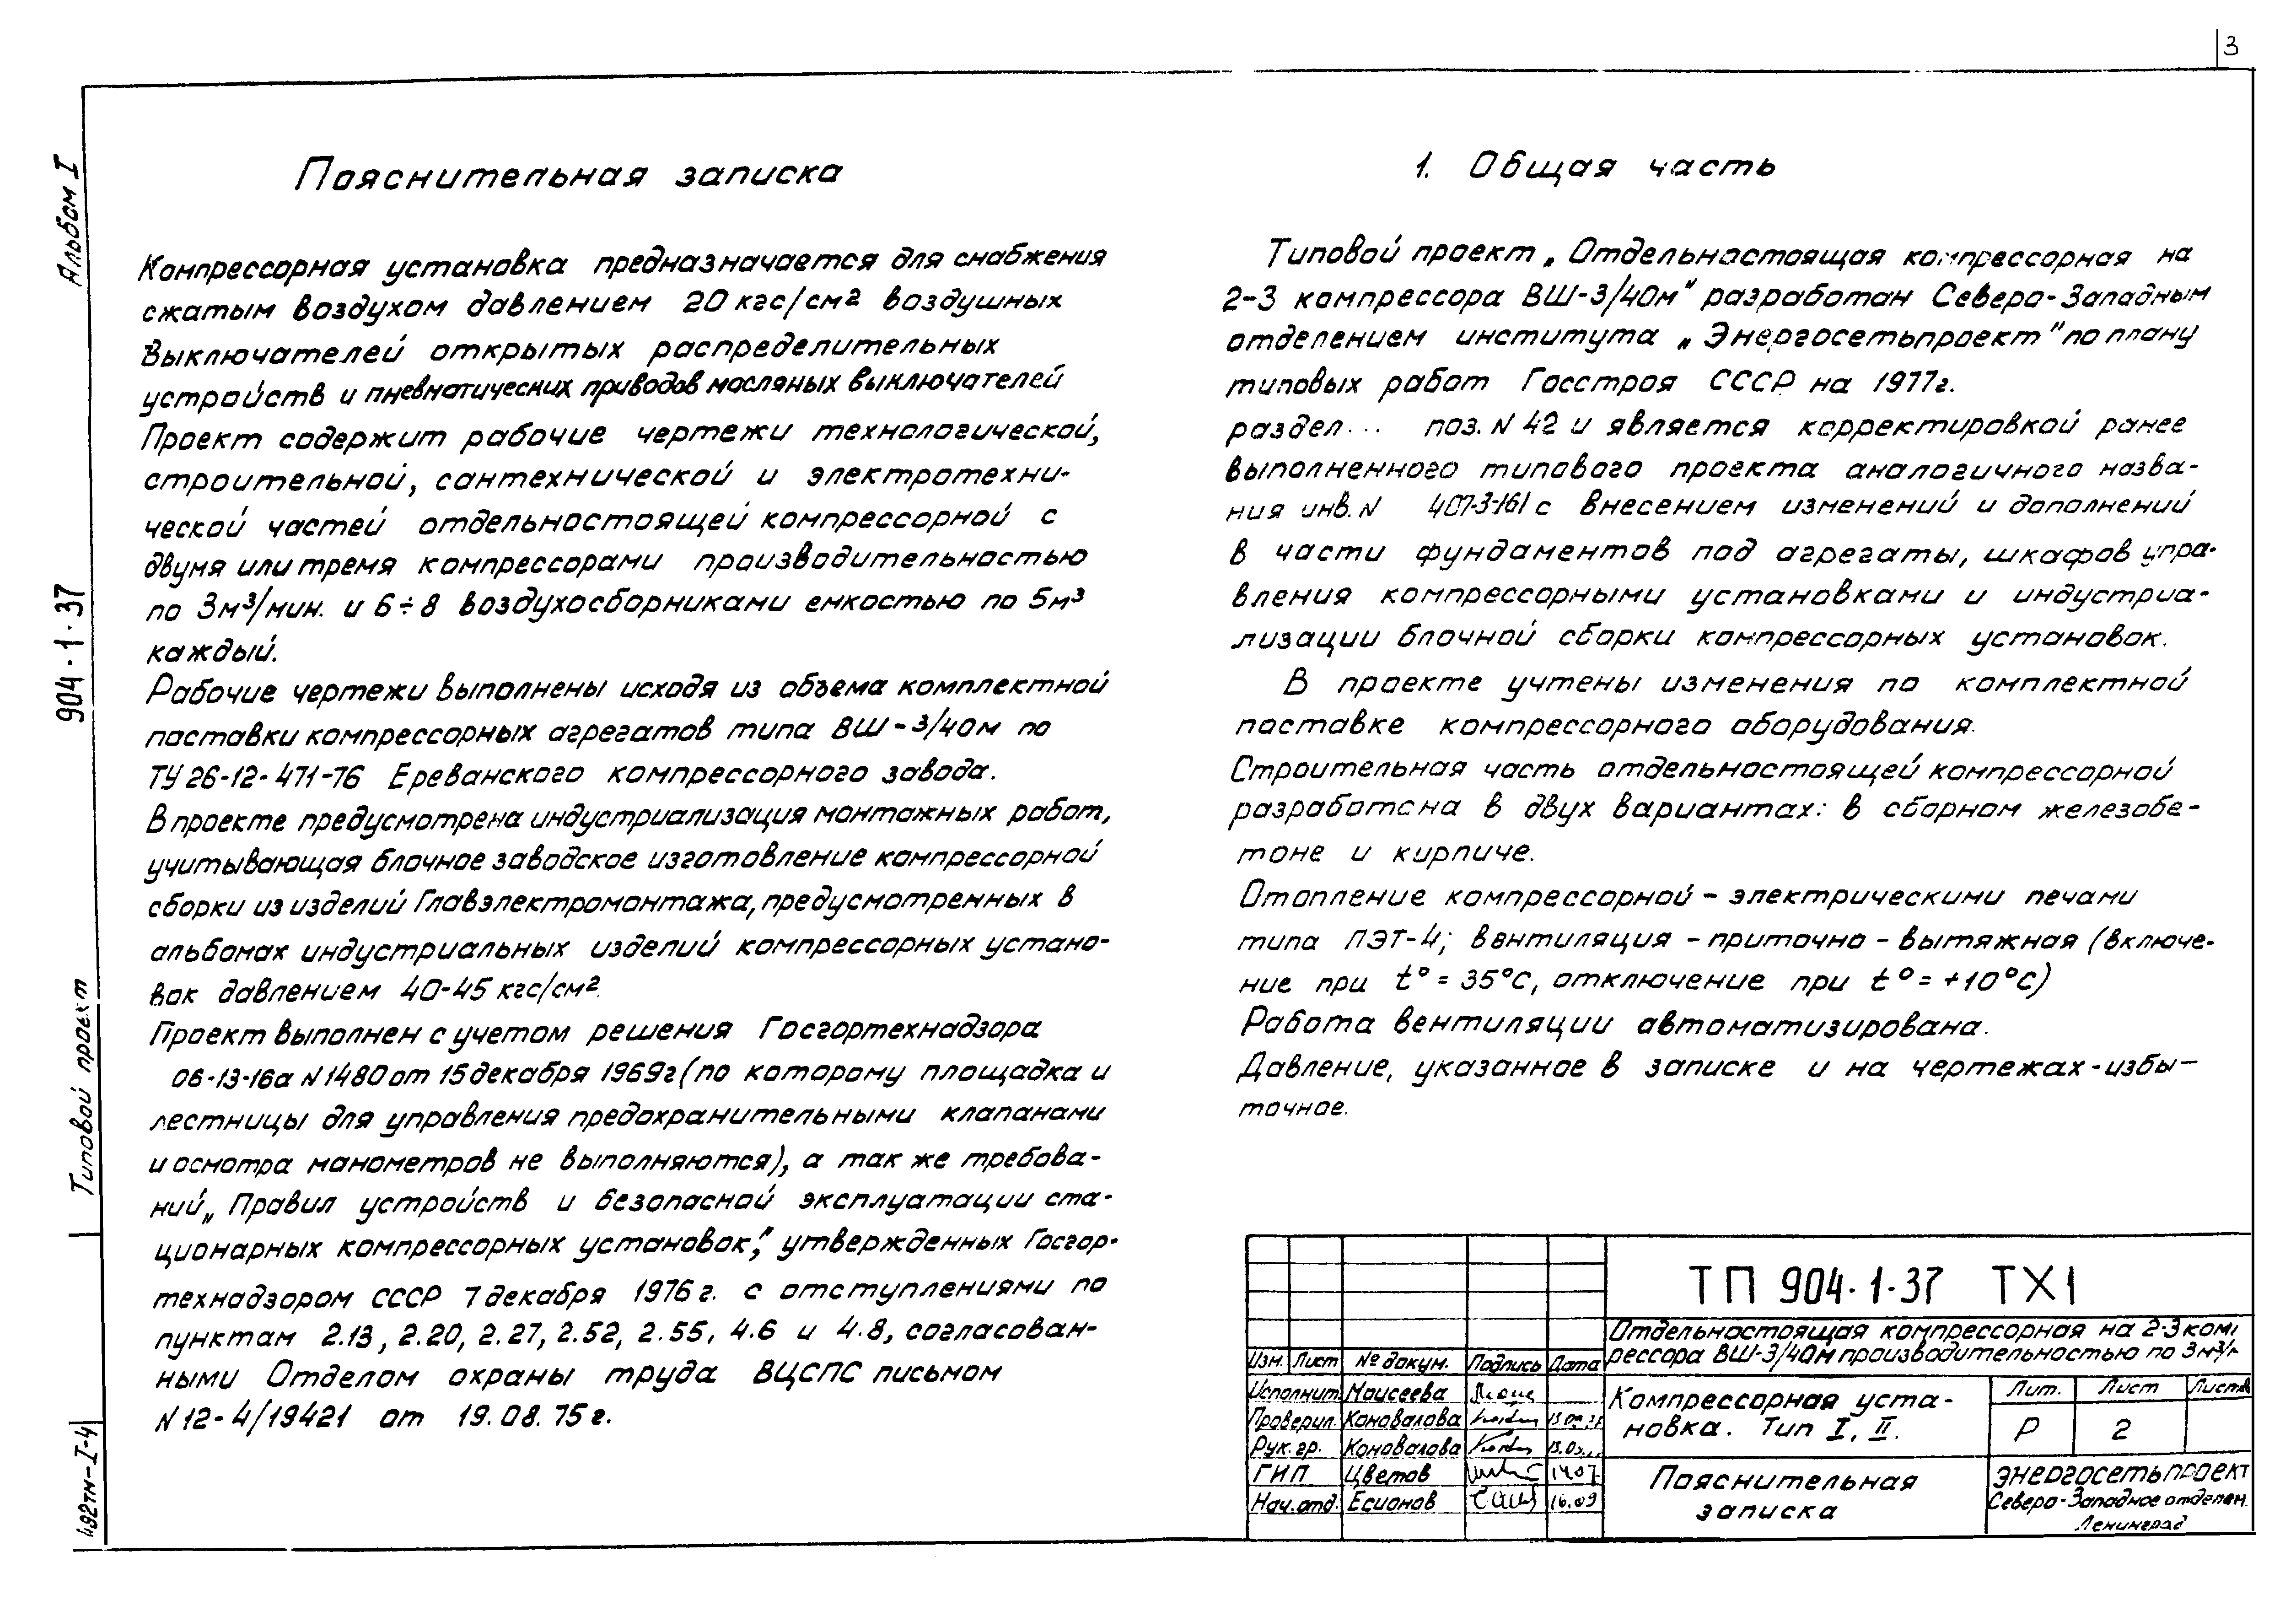 3
Альбом I
904-1-37
Типовой проект
492тм-I-4
Пояснительная записка
Компрессорная установка предназначается для снабжения
сжатым воздухом давлением 20 кгс/см² воздушных
выключателей открытых распределительных
устройств и пневматических приводов масляных выключателей
Проект содержит рабочие чертежи технологической,
строительной, сантехнической и электротехни-
ческой частей отдельностоящей компрессорной с
двумя или тремя компрессорами производительностью
по 3м³/мин. и 6÷8 воздухосборниками емкостью по 5м³
каждый.
Рабочие чертежи выполнены исходя из объема комплектной
поставки компрессорных агрегатов типа ВШ-3/40м по
ТУ 26-12-471-76 Ереванского компрессорного завода.
В проекте предусмотрена индустриализация монтажных работ,
учитывающая блочное заводское изготовление компрессорной
сборки из изделий Главэлектромонтажа, предусмотренных в
альбомах индустриальных изделий компрессорных устано-
вок давлением 40-45 кгс/см².
Проект выполнен с учетом решения Госгортехнадзора
06-13-16а N1480 от 15 декабря 1969г (по которому площадка и
лестницы для управления предохранительными клапанами
и осмотра манометров не выполняются), а так же требова-
ний „Правил устройств и безопасной эксплуатации ста-
ционарных компрессорных установок," утвержденных Госгор-
технадзором СССР 7 декабря 1976 г. с отступлениями по
пунктам 2.13, 2.20, 2.27, 2.52, 2.55, 4.6 и 4.8, согласован-
ными Отделом охраны труда ВЦСПС письмом
N 12-4/19421 от 19.08.75 г.
1. Общая часть
Типовой проект „Отдельностоящая компрессорная на
2-3 компрессора ВШ-3/40м" разработан Северо-Западным
отделением института „Энергосетьпроект" по плану
типовых работ Госстроя СССР на 1977г.
раздел... поз. N 42 и является корректировкой ранее
выполненного типового проекта аналогичного назва-
ния инв. N 407-3-161 с внесением изменений и дополнений
в части фундаментов под агрегаты, шкафов упра-
вления компрессорными установками и индустриа-
лизации блочной сборки компрессорных установок.
В проекте учтены изменения по комплектной
поставке компрессорного оборудования.
Строительная часть отдельностоящей компрессорной
разработана в двух вариантах: в сборном железобе-
тоне и кирпиче.
Отопление компрессорной - электрическими печами
типа ПЭТ-4; вентиляция - приточно - вытяжная (включе-
ние при t° = 35°С, отключение при t° = +10°С)
Работа вентиляции автоматизирована.
Давление, указанное в записке и на чертежах - избы-
точное.
ТП 904-1-37 ТХ1
Отдельностоящая компрессорная на 2-3 комп
рессора ВШ-3/40м производительностью по 3м³/м
Изм. Лист № докум. Подпись Дата
Исполнит. Моисеева
Проверил. Коновалова
Рук. гр. Коновалова
ГИП Цветов 14.07
Нач. отд. Есионов 16.09
Компрессорная уста-
новка. Тип I, II.
Лит. Лист Листов
Р 2
Пояснительная
записка
ЭНЕРГОСЕТЬПРОЕКТ
Северо-Западное отделен.
Ленинград